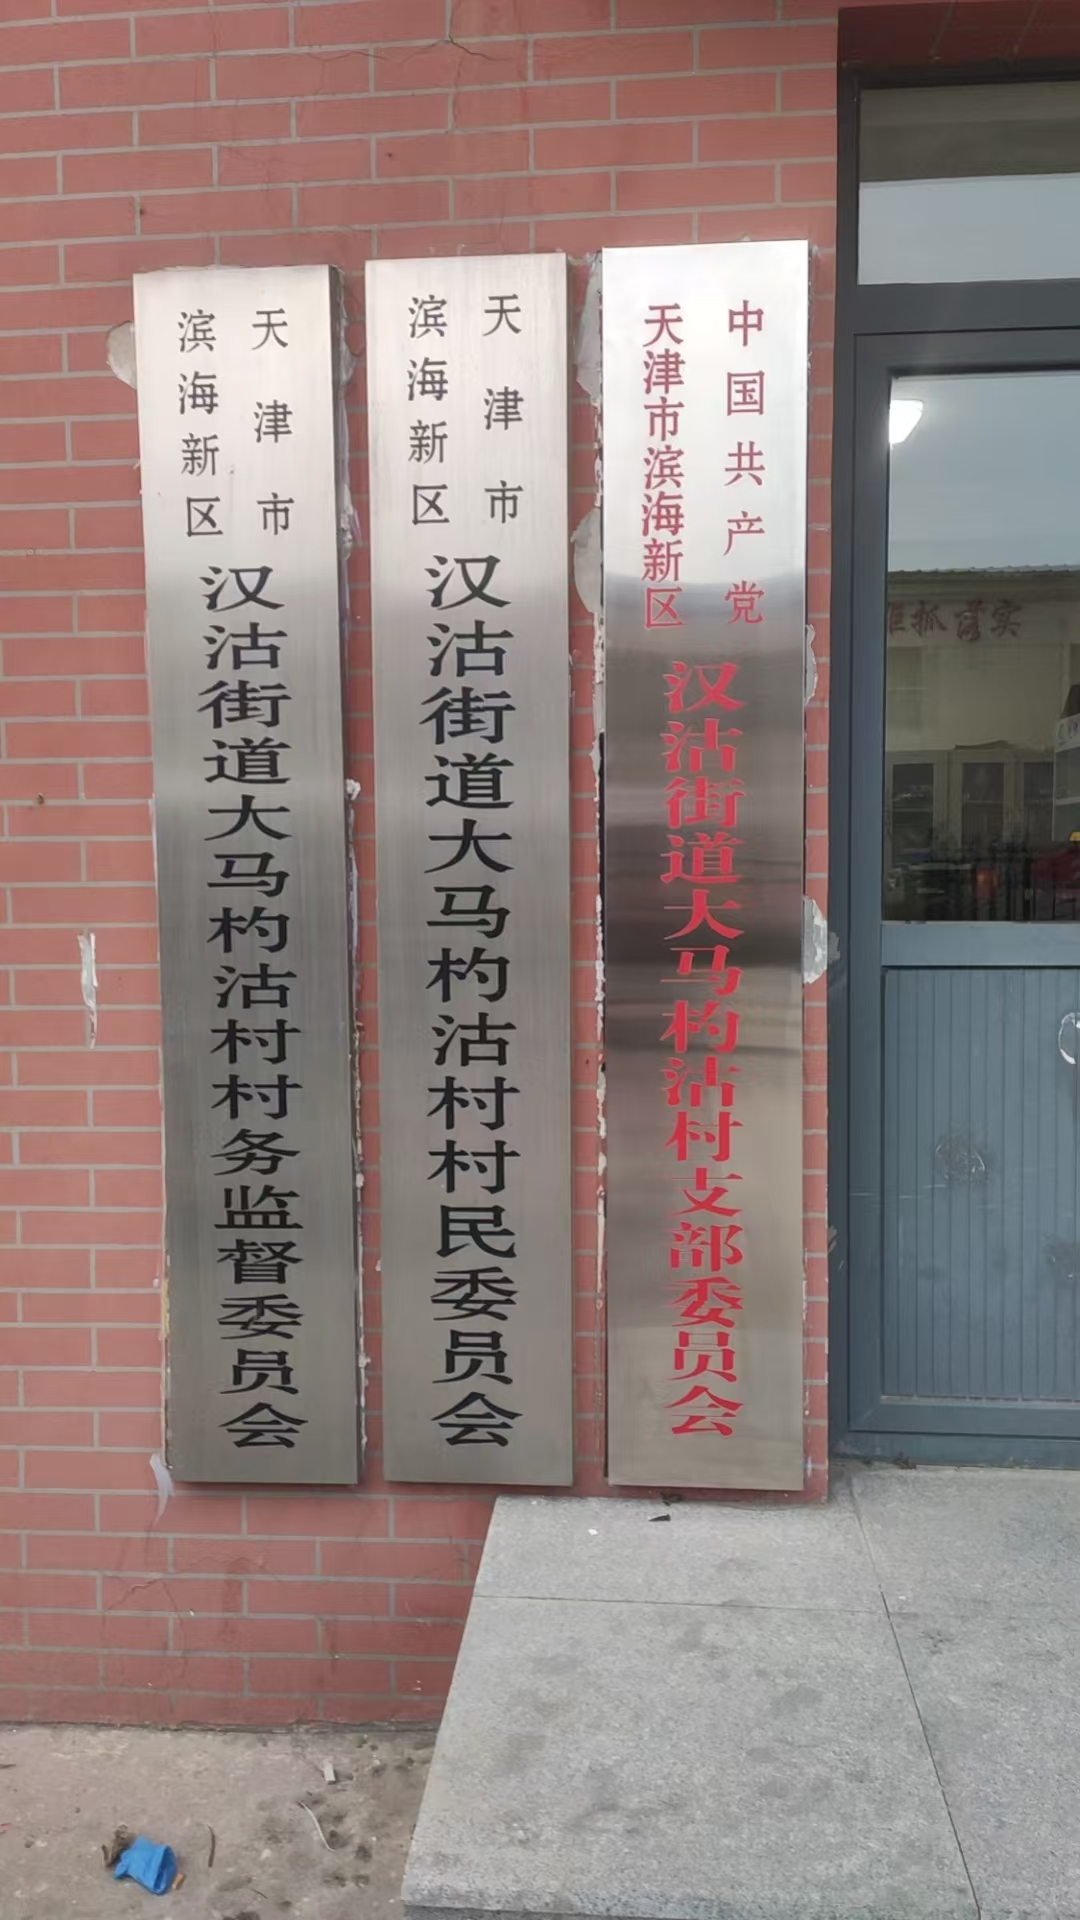 中国共产党
天津市滨海新区
汉沽街道大马杓沽村支部委员会
天津市
滨海新区
汉沽街道大马杓沽村村民委员会
天津市
滨海新区
汉沽街道大马杓沽村村务监督委员会
抓落实